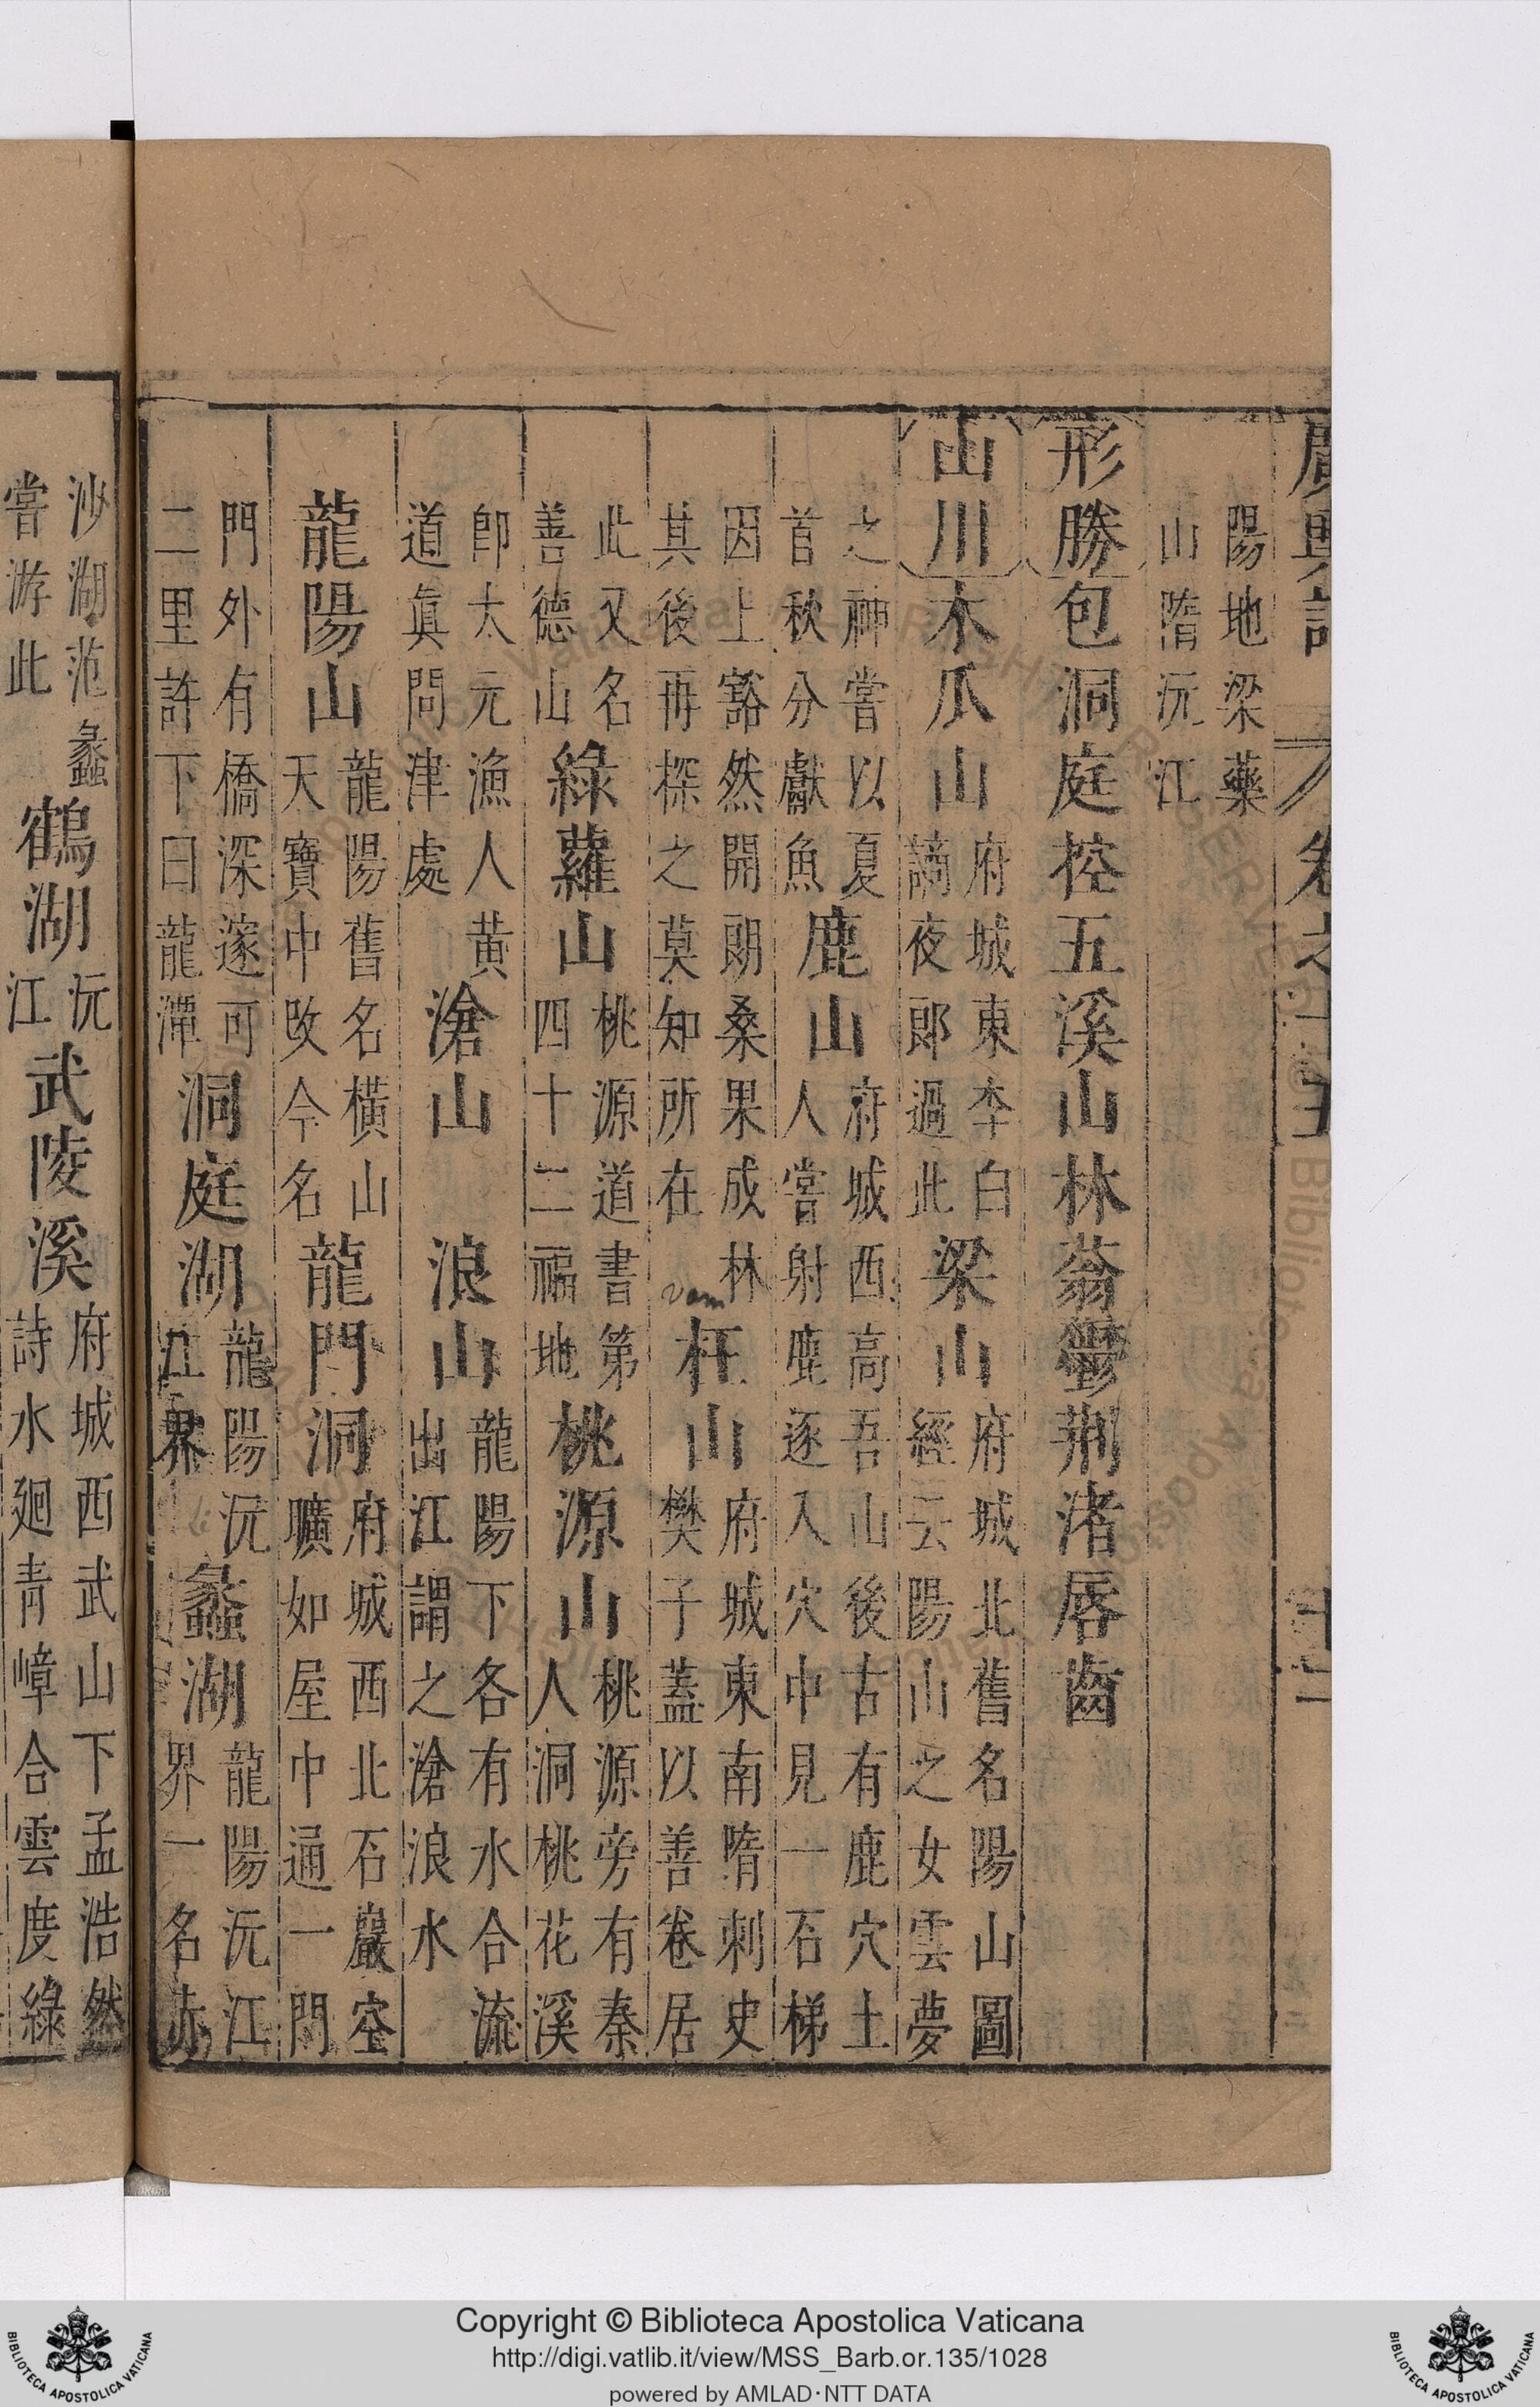 廣輿記 卷之十五 十二
陽地梁藥
山隋沅江
形勝包洞庭控五溪山林蓊鬱荊渚唇齒
山川木瓜山
府城東李白
謫夜郎過此
梁山
府城北舊名陽山圖
經云陽山之女雲夢
之神嘗以夏
首秋分獻魚
鹿山
府城西高吾山後古有鹿穴土
人嘗射鹿逐入穴中見一石梯
因上豁然開朗桑果成林
其後再探之莫知所在
vam
枉山
府城東南隋刺史
樊子蓋以善卷居
此又名
善德山
綠蘿山
桃源道書第
四十二福地
桃源山
桃源旁有秦
人洞桃花溪
卽太元漁人黃
道眞問津處
滄山
浪山
龍陽下各有水合流
出江謂之滄浪水
龍陽山
龍陽舊名橫山
天寶中改今名
龍門洞
府城西北石巖空
壙如屋中通一門
門外有橋深邃可
二里許下曰龍潭
洞庭湖
龍陽沅
江界
蠡湖
龍陽沅江
界一名赤
沙湖范蠡
嘗游此
鶴湖
沅
江
武陵溪
府城西武山下孟浩然
詩水廻青嶂合雲度綠
Copyright © Biblioteca Apostolica Vaticana
http://digi.vatlib.it/view/MSS_Barb.or.135/1028
powered by AMLAD·NTT DATA
BIBLIOTECA APOSTOLICA VATICANA
BIBLIOTECA APOSTOLICA VATICANA